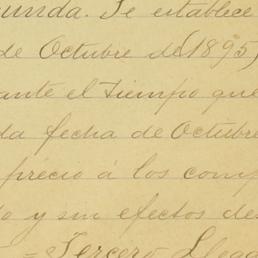 unda. Se establece
de Octubre de (1895)
ante el tiempo que
da fecha de Octubre
precio á los comp
o y sin efectos des
= Tercero. Llega